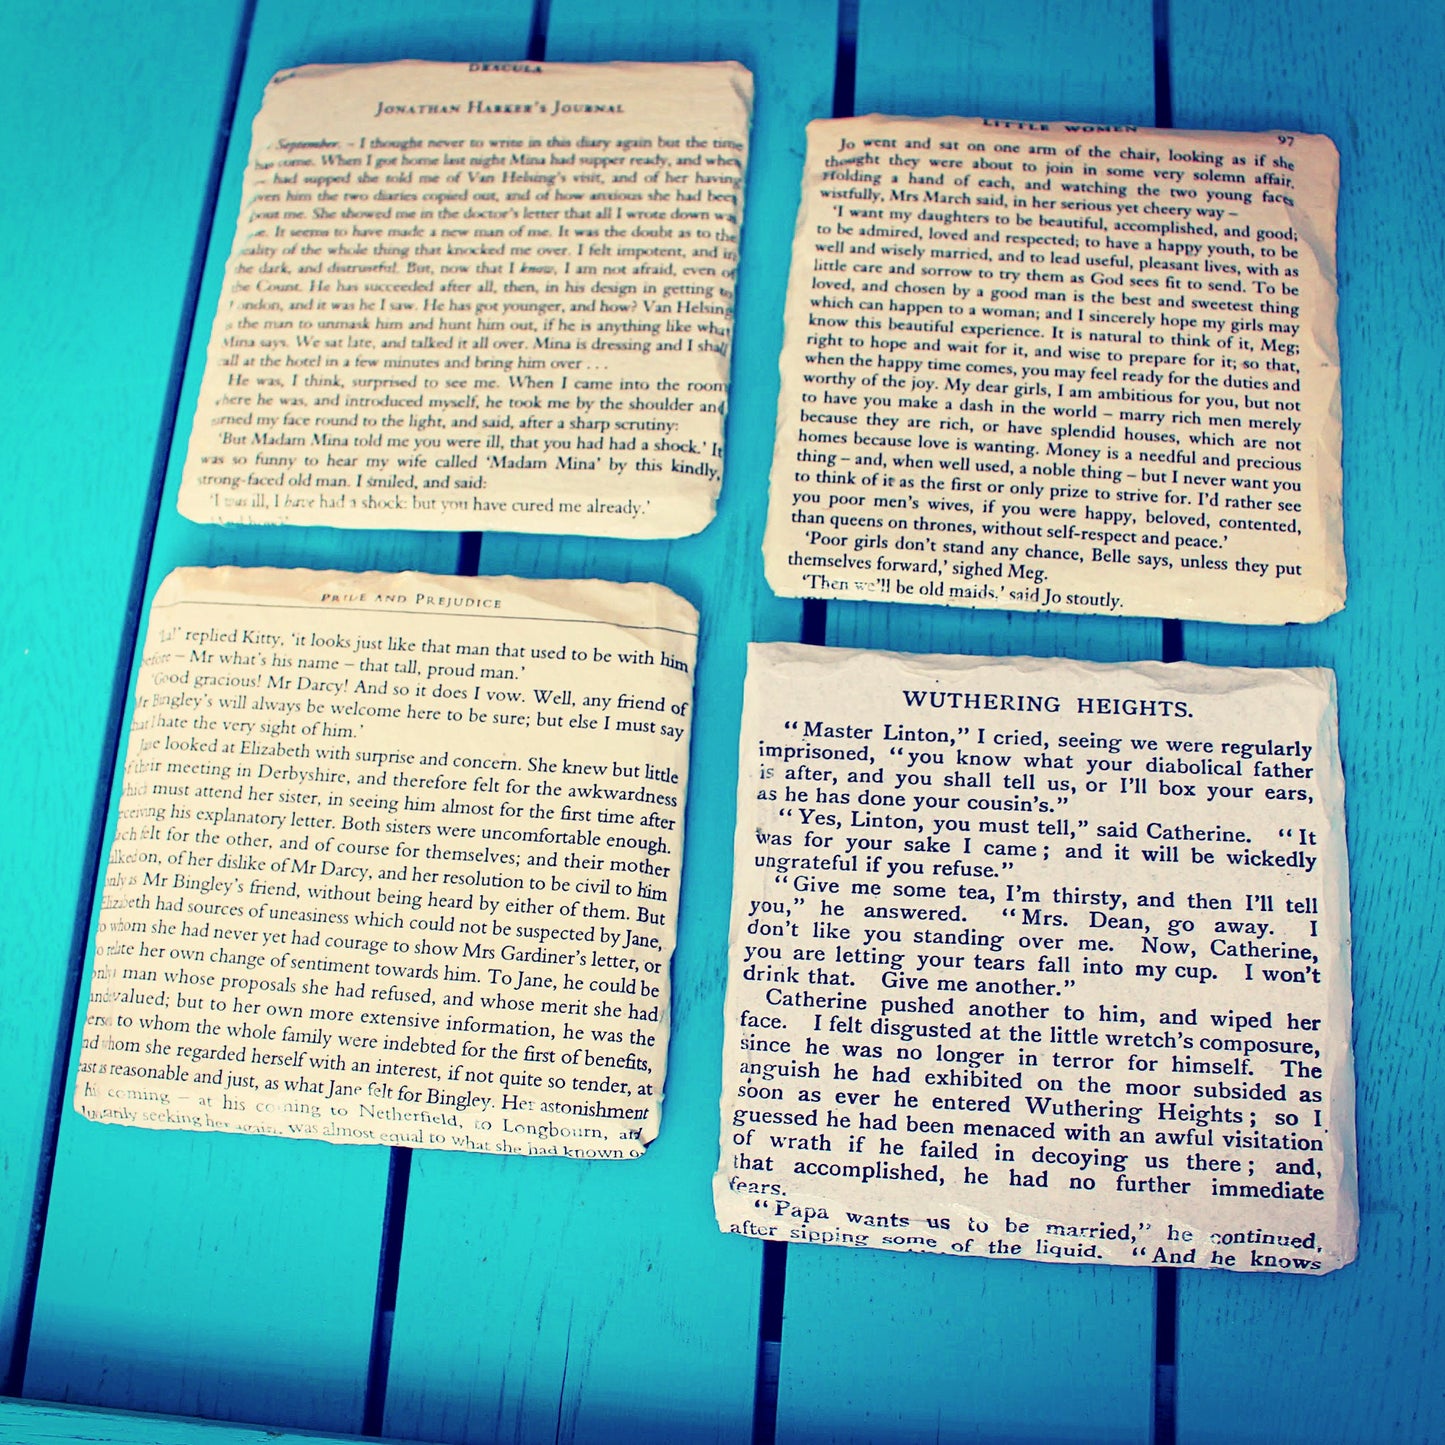 DRACULA
JONATHAN HARKER'S JOURNAL
September. – I thought never to write in this diary again but the time
has come. When I got home last night Mina had supper ready, and when
had supped she told me of Van Helsing's visit, and of her having
ven him the two diaries copied out, and of how anxious she had been
bout me. She showed me in the doctor's letter that all I wrote down wa
ue. It seems to have made a new man of me. It was the doubt as to the
eality of the whole thing that knocked me over. I felt impotent, and in
the dark, and distrustful. But, now that I know, I am not afraid, even of
the Count. He has succeeded after all, then, in his design in getting to
London, and it was he I saw. He has got younger, and how? Van Helsing
is the man to unmask him and hunt him out, if he is anything like what
Mina says. We sat late, and talked it all over. Mina is dressing and I shall
call at the hotel in a few minutes and bring him over . . .
He was, I think, surprised to see me. When I came into the room
where he was, and introduced myself, he took me by the shoulder and
urned my face round to the light, and said, after a sharp scrutiny:
'But Madam Mina told me you were ill, that you had had a shock.' It
was so funny to hear my wife called 'Madam Mina' by this kindly,
strong-faced old man. I smiled, and said:
'I was ill, I have had a shock: but you have cured me already.'
LITTLE WOMEN 97
Jo went and sat on one arm of the chair, looking as if she
thought they were about to join in some very solemn affair.
Holding a hand of each, and watching the two young faces
wistfully, Mrs March said, in her serious yet cheery way –
'I want my daughters to be beautiful, accomplished, and good;
to be admired, loved and respected; to have a happy youth, to be
well and wisely married, and to lead useful, pleasant lives, with as
little care and sorrow to try them as God sees fit to send. To be
loved, and chosen by a good man is the best and sweetest thing
which can happen to a woman; and I sincerely hope my girls may
know this beautiful experience. It is natural to think of it, Meg;
right to hope and wait for it, and wise to prepare for it; so that,
when the happy time comes, you may feel ready for the duties and
worthy of the joy. My dear girls, I am ambitious for you, but not
to have you make a dash in the world – marry rich men merely
because they are rich, or have splendid houses, which are not
homes because love is wanting. Money is a needful and precious
thing – and, when well used, a noble thing – but I never want you
to think of it as the first or only prize to strive for. I'd rather see
you poor men's wives, if you were happy, beloved, contented,
than queens on thrones, without self-respect and peace.'
'Poor girls don't stand any chance, Belle says, unless they put
themselves forward,' sighed Meg.
'Then we'll be old maids,' said Jo stoutly.
PRIDE AND PREJUDICE
'La!' replied Kitty, 'it looks just like that man that used to be with him
before – Mr what's his name – that tall, proud man.'
'Good gracious! Mr Darcy! And so it does I vow. Well, any friend of
Mr Bingley's will always be welcome here to be sure; but else I must say
that I hate the very sight of him.'
Jane looked at Elizabeth with surprise and concern. She knew but little
of their meeting in Derbyshire, and therefore felt for the awkwardness
which must attend her sister, in seeing him almost for the first time after
eceiving his explanatory letter. Both sisters were uncomfortable enough.
ach felt for the other, and of course for themselves; and their mother
alked on, of her dislike of Mr Darcy, and her resolution to be civil to him
only as Mr Bingley's friend, without being heard by either of them. But
Elizabeth had sources of uneasiness which could not be suspected by Jane,
to whom she had never yet had courage to show Mrs Gardiner's letter, or
to relate her own change of sentiment towards him. To Jane, he could be
only a man whose proposals she had refused, and whose merit she had
undervalued; but to her own more extensive information, he was the
erson to whom the whole family were indebted for the first of benefits,
nd whom she regarded herself with an interest, if not quite so tender, at
east as reasonable and just, as what Jane felt for Bingley. Her astonishment
his coming – at his coming to Netherfield, to Longbourn, and
luntarily seeking her again, was almost equal to what she had known o
WUTHERING HEIGHTS.
"Master Linton," I cried, seeing we were regularly
imprisoned, "you know what your diabolical father
is after, and you shall tell us, or I'll box your ears,
as he has done your cousin's."
"Yes, Linton, you must tell," said Catherine. "It
was for your sake I came; and it will be wickedly
ungrateful if you refuse."
"Give me some tea, I'm thirsty, and then I'll tell
you," he answered. "Mrs. Dean, go away. I
don't like you standing over me. Now, Catherine,
you are letting your tears fall into my cup. I won't
drink that. Give me another."
Catherine pushed another to him, and wiped her
face. I felt disgusted at the little wretch's composure,
since he was no longer in terror for himself. The
anguish he had exhibited on the moor subsided as
soon as ever he entered Wuthering Heights; so I
guessed he had been menaced with an awful visitation
of wrath if he failed in decoying us there; and,
that accomplished, he had no further immediate
fears.
"Papa wants us to be married," he continued,
after sipping some of the liquid. "And he knows